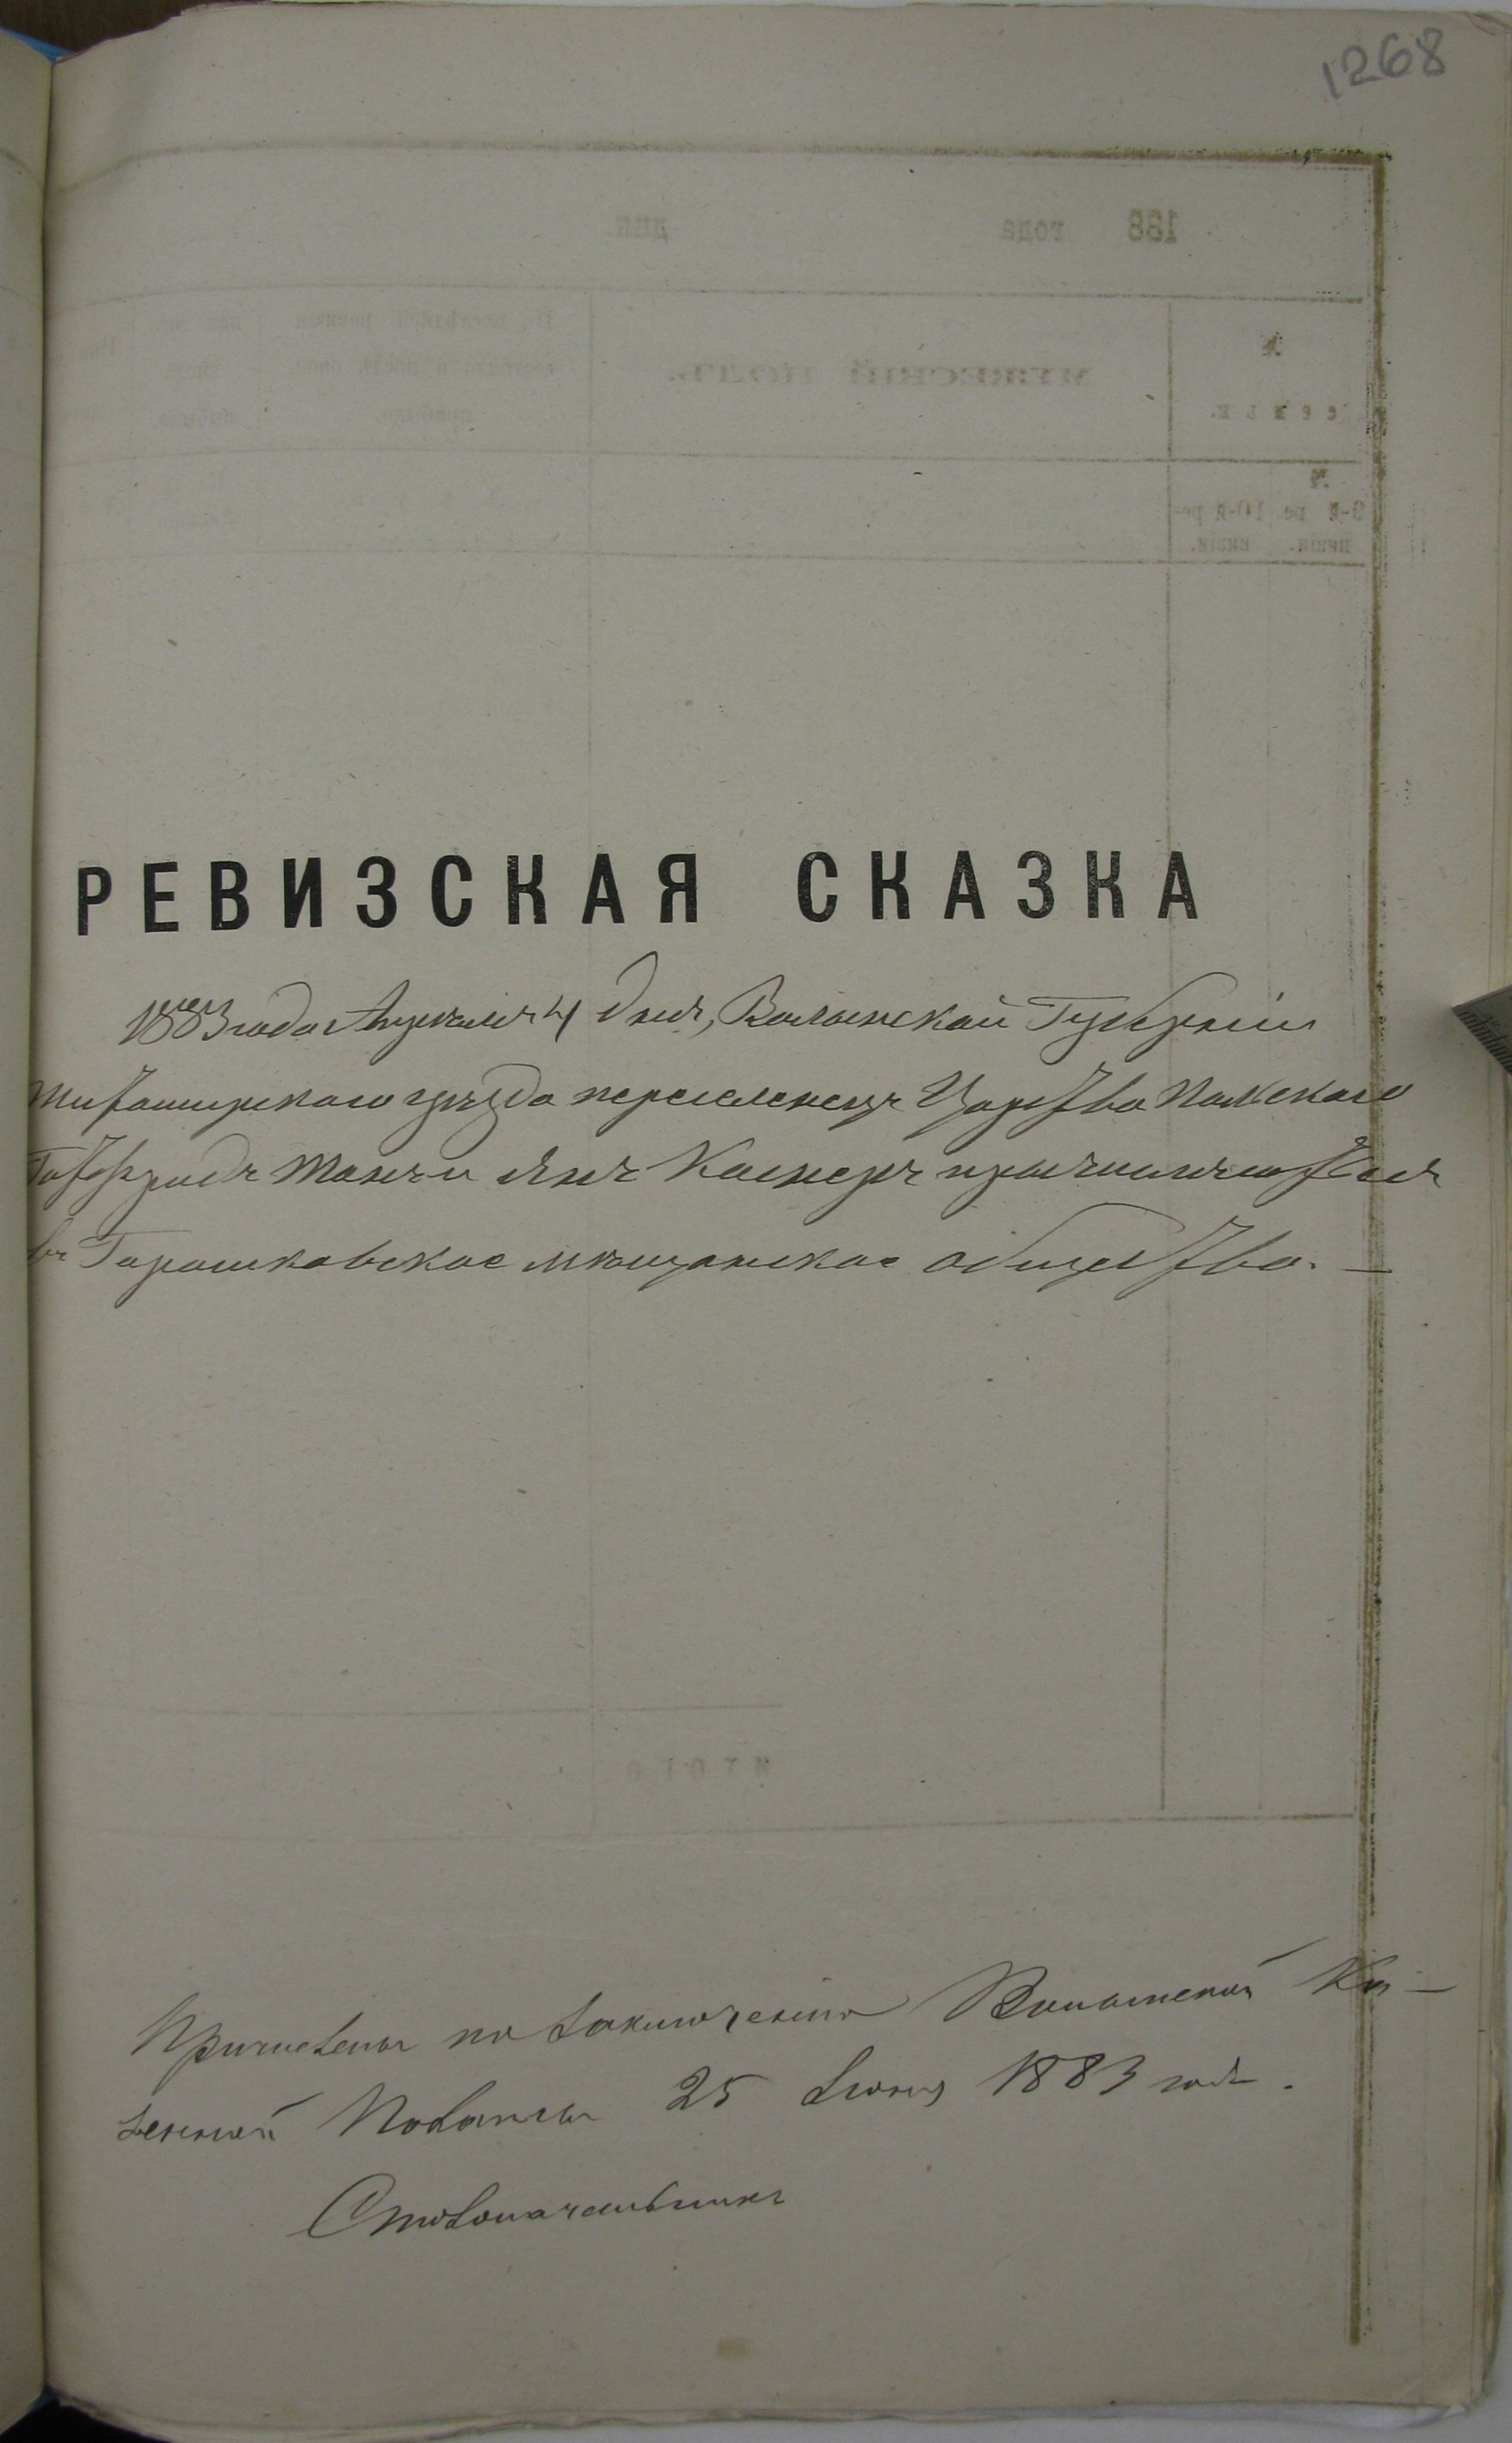 1268
РЕВИЗСКАЯ СКАЗКА
1883 года Апреля 4 дня, Волынской Губерніи
Житомирскаго уѣзда переселенецъ Царства Польскаго
Готфридъ Манъ и Янъ Каснеръ причисляются
въ Горошковское мѣщанское общество. —
Причислены по заключенію Волынской Ка-
зенной Палаты 25 Июня 1883 года.
Столоначальникъ